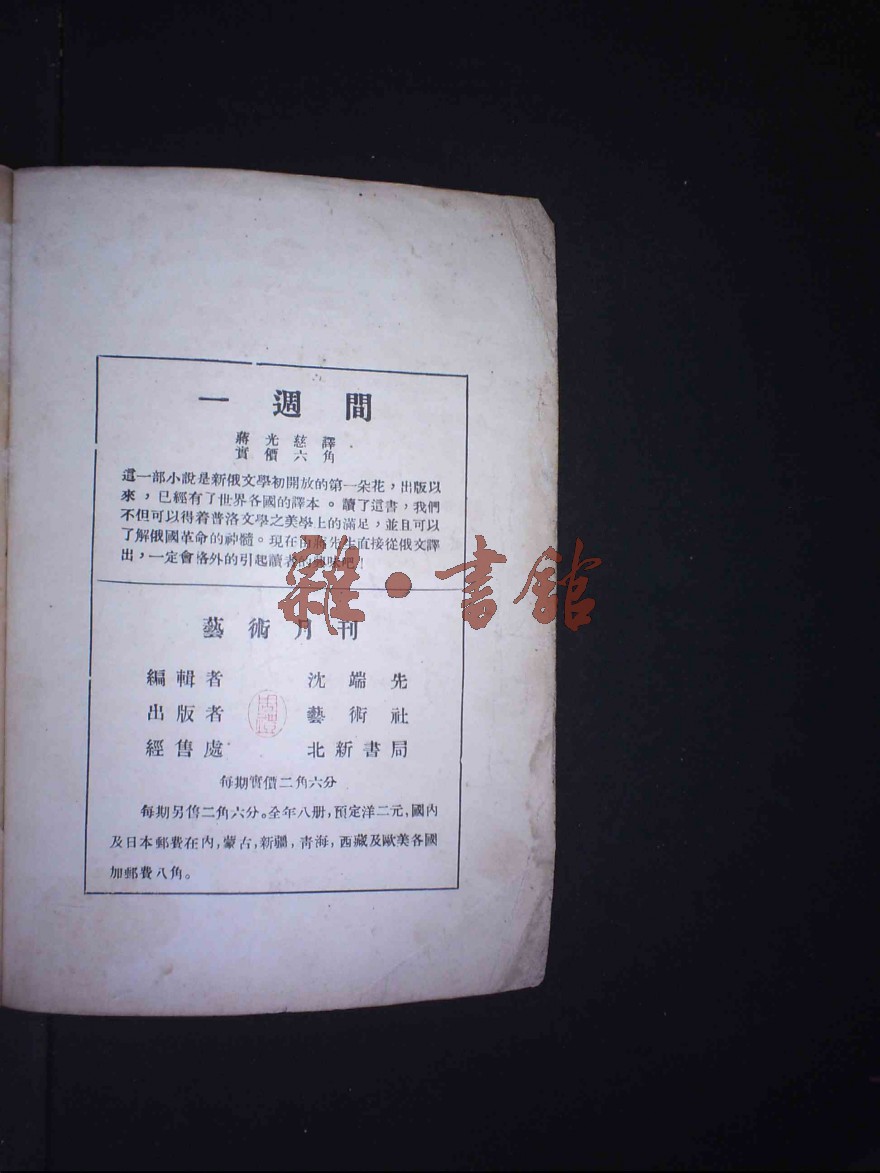 一週間
蔣光慈譯
實價六角
這一部小說是新俄文學初開放的第一朵花，出版以
來，已經有了世界各國的譯本。讀了這書，我們
不但可以得着普洛文學之美學上的滿足，並且可以
了解俄國革命的神髓。現在由蔣先生直接從俄文譯
出，一定會格外的引起讀者的興味吧！
雜・書館
藝術月刊
編輯者 沈端先
出版者 藝術社
經售處 北新書局
每期實價二角六分
每期另售二角六分。全年八册，預定洋二元，國內
及日本郵費在內，蒙古，新疆，青海，西藏及歐美各國
加郵費八角。